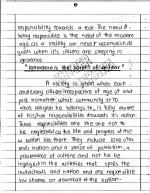 responsibility towards a task. The need of
being responsible is the need of the modern
age as a society can never accomplish
goals when it's citizens are sleeping in
ignorance.
"Ignorance is the parent of
A society is great when each
and every citizen irrespective of age and
just number what community or to
which religion he belongs to, is fully aware
of his/her responsibilities towards his nation.
These responsibilities are the one not to
be neglected as the life and progress of the
a nation lies there. They induce love
and nation and a sense of patriotism, a
of culture and not to be
neglected in the
individuals and nation and are responsible
for shame or downfall of the nation.